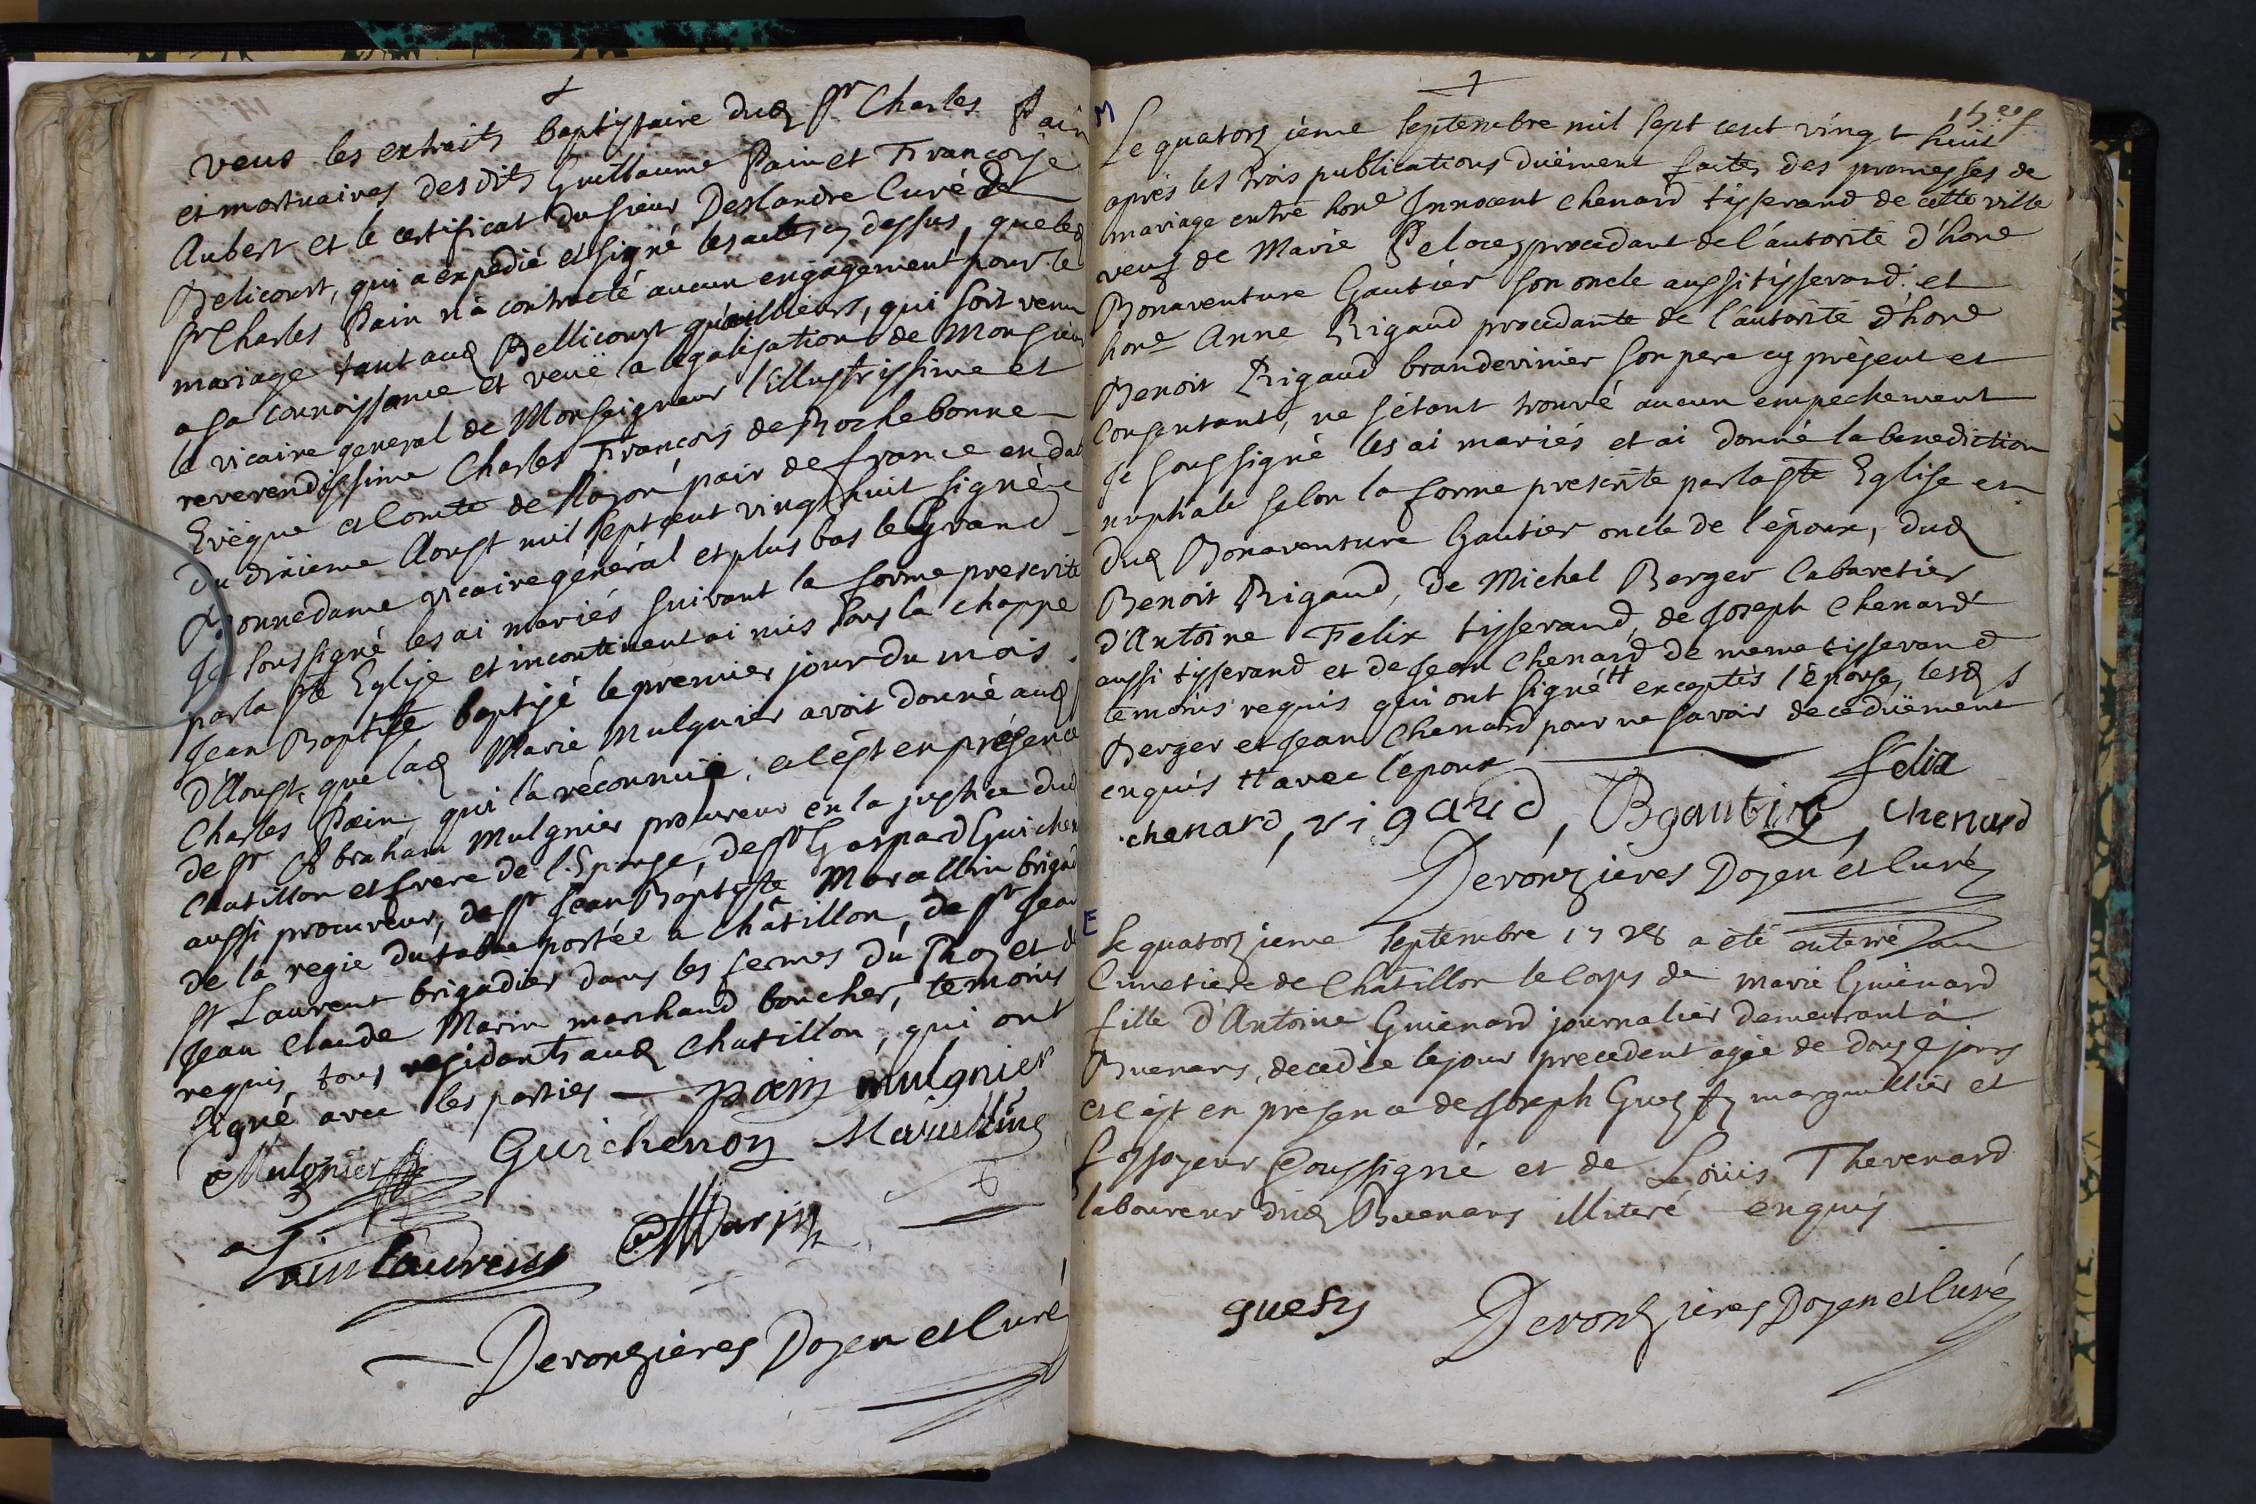 veus les extraits baptistaire dud Sr Charles Pain
et mortuaires desdits Guillaume Pain et Françoise
Aubert et le certificat du sieur Deslandre Curé de
Belicourt, qui a expedié et signé les actes cy dessus, que led
Sr Charles Pain n'a contracté aucun engagement pour le
mariage tant aud Bellicourt qu'ailleurs, qui soit venu
a sa connoissance et veüe la legalisation de Monsieur
le vicaire general de Monseigneur l'Illustrissime et
reverendissime Charles François de Rochebonne
Evêque et Comte de Noyon pair de france en dat
du dixieme Aoust mil sept cent vingt huit signée
Bonnedame vicaire général et plus bas le Grand
Je soussigné les ai mariés suivant la forme prescrite
par la Ste Eglise et incontinent ai mis sous la chappe
Jean Baptiste baptisé le premier jour du mois
d'Aoust, que lad Marie Mulgnier avoit donné aud
Charles Pain, qui l'a réconnu, et c'est en présence
de Sr Abraham Mulgnier procureur en la justice dud
Chatillon et frere de l'Epouse, de Sr Gaspard Guichen
aussi procureur, de Sr Jean Baptiste Maraillin brigad
de la regie du tabac postée a Châtillon, de Sr Jean
St Laurent brigadier dans les fermes du Roy et de
Jean Claude Marin marchand boucher, temoins
requis tous residants aud Chatillon, qui ont
signé avec les parties pain mulgnier
Mulgnier Guichenon Maraillin
Sainlaurens Marin
Deronzieres Doyen et Curé
M
Le quatorzieme septembre mil sept cent vingt huit
aprés les trois publications duëment faites des promesses de
mariage entre hone Innocent Chenard tisserand de cette ville
veuf de Marie Peloce, procedant de l'autorité d'hone
Bonaventure Gautier son oncle aussi tisserand: et
hone Anne Rigaud procedante de l'autorité d'hone
Benoit Rigaud brandevinier son pere cy présent et
Consentant, ne s'étant trouvé aucun empechement
Je soussigné les ai mariés et ai donné la benediction
nuptiale selon la forme prescrite par la Ste Eglise en
dud Bonaventure Gautier oncle de l'époux, dud
Benoit Rigaud, De Michel Berger Cabaretier
d'Antoine Felix tisserand, de Joseph Chenard
aussi tisserand et de Jean Chenard de meme tisserand
temoins requis qui ont signé # exceptés l'épouse, lesd s
Berger et Jean Chenard pour ne savoir de ce duëment
enquis # avec l'époux
felix
chenard, rigaud, Bgautier, Chenard
Deronzieres Doyen et Curé
E
Le quatorzieme septembre 1728 a été enterré au
Cimetiere de Châtillon le Corps de marie Guienard
fille d'Antoine Guienard journalier demeurant à
Buenans, decedée le jour precedent agée de douze jours
et c'est en presence de Joseph Guesfy marguillier et
Fossoyeur soussigné et de Loüis Thevenard
laboureur dud Buenans illiteré enquis
guesfy Deronzieres Doyen et Curé